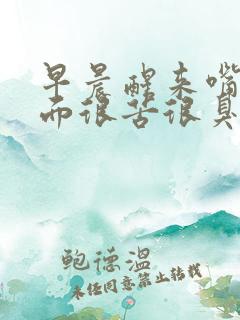 早晨醒来嘴
而很苦很臭
鲍德温
未经同意禁止转载